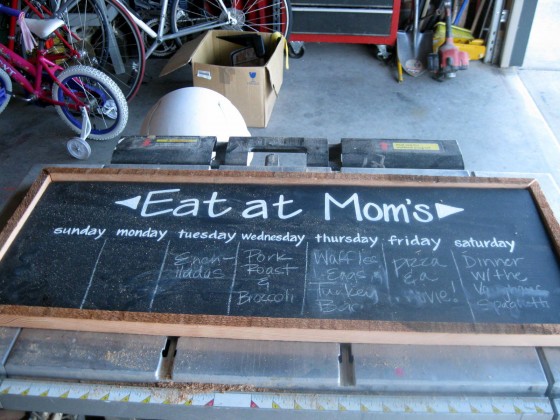 Eat at Mom's
sunday monday tuesday wednesday thursday friday saturday
Ench-
iladas
Pork
Roast
&
Brocooli
Waffles
Eggs
Turkey
Pizza
& a
Dinner
w/ the
Spaghetti